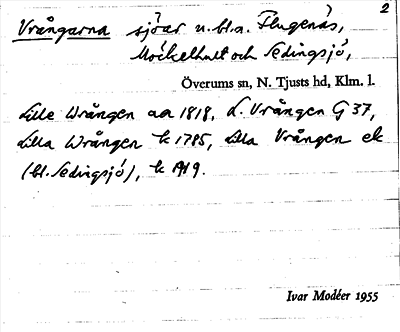 2
Vrångarna sjöar u. bl.a. Flugenäs,
Möckelhult och Sedingsjö,
Överums sn, N. Tjusts hd, Klm. l.
Lille Wrången aa 1818, L. Vrången G 37,
Lilla Wrången k 1785, Lilla Vrången ek
(bl. Sedingsjö), k 1919.
Ivar Modéer 1955